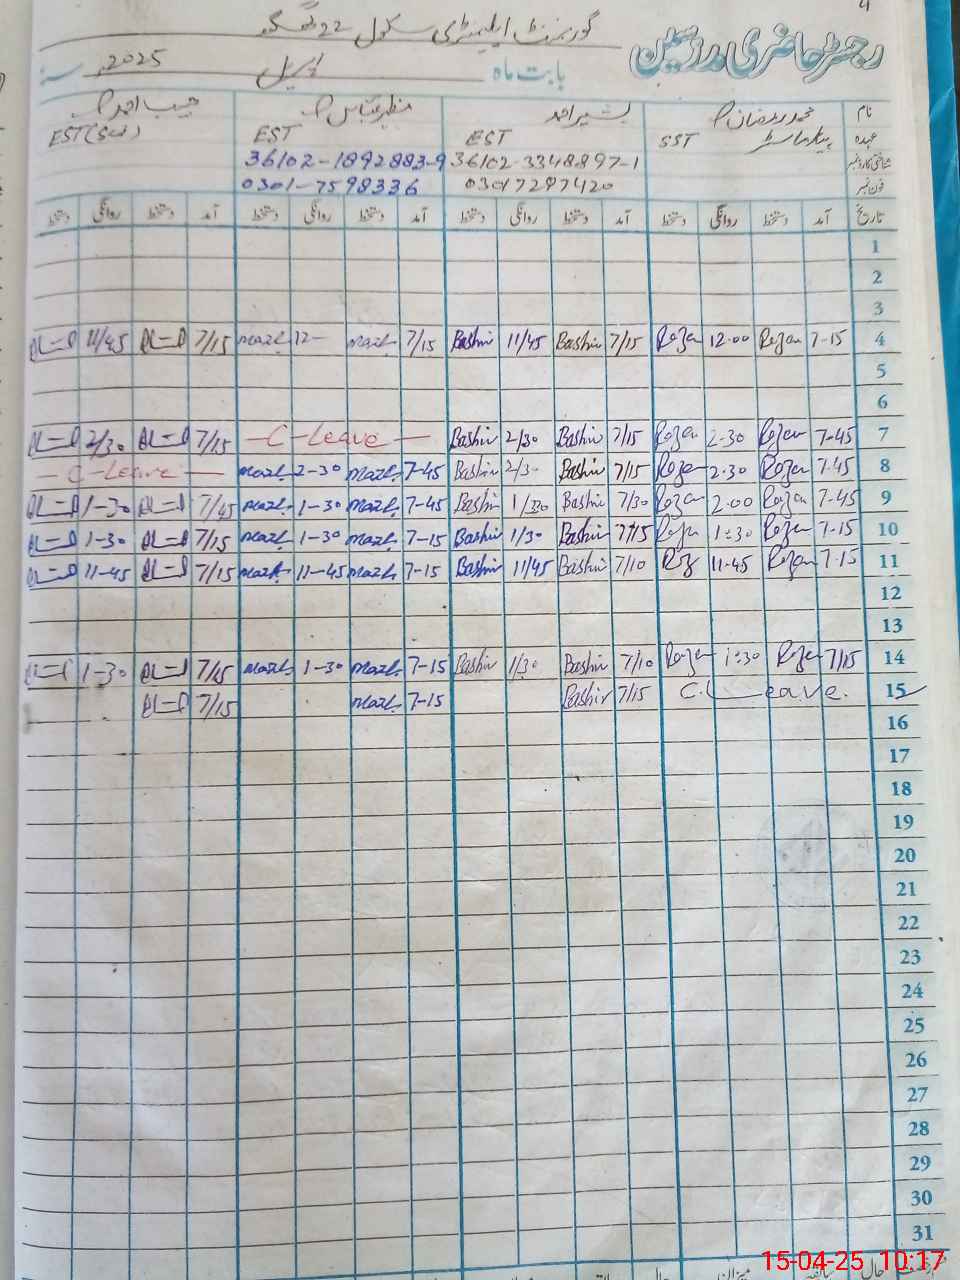 4
گورنمنٹ ایلیمنٹری سکول 22
رجسٹر حاضری مدرسین
بابت ماہ اپریل 2025ء سنہ
نام محمد رمضان بشیر احمد مظہر عباس حبیب احمد
عہدہ ہیڈ ماسٹر SST EST EST EST
شناختی کارڈ نمبر 36102-3348897-1 36102-1892883-9
فون نمبر 03017287420 0301-7598336
تاریخ آمد دستخط روانگی دستخط آمد دستخط روانگی دستخط آمد دستخط روانگی دستخط آمد دستخط روانگی دستخط
1
2
3
7/15 11/45 7/15 Mazh 12- Mazh 7/15 Bashir 11/45 Bashir 7/15 Rozan 12.00 Rozan 7-15 4
5
6
2/30 7/15 -C-Leave- Bashir 2/30 Bashir 7/15 Rozan 2-30 Rozan 7-45 7
-C-Leave- Mazh. 2-30 Mazh. 7-45 Bashir 2/3- Bashir 7/15 Rozan 2.30 Rozan 7-45 8
1-30 7/45 Mazh. 1-30 Mazh. 7-45 Bashir 1/30 Bashir 7/30 Rozan 2.00 Rozan 7-45 9
1-30 7/15 Mazh. 1-30 Mazh. 7-15 Bashir 1/30 Bashir 7/15 Rozan 1:30 Rozan 7-15 10
11-45 7/15 Mazh. 11-45 Mazh. 7-15 Bashir 11/45 Bashir 7/10 Roz 11-45 Rozan 7-15 11
12
13
1-30 7/15 Mazh. 1-30 Mazh. 7-15 Bashir 1/30 Bashir 7/10 Rozan 1:30 Rozan 7/15 14
7/15 Mazh. 7-15 Bashir 7/15 C.Leave. 15
16
17
18
19
20
21
22
23
24
25
26
27
28
29
30
31
15-04-25 10:17